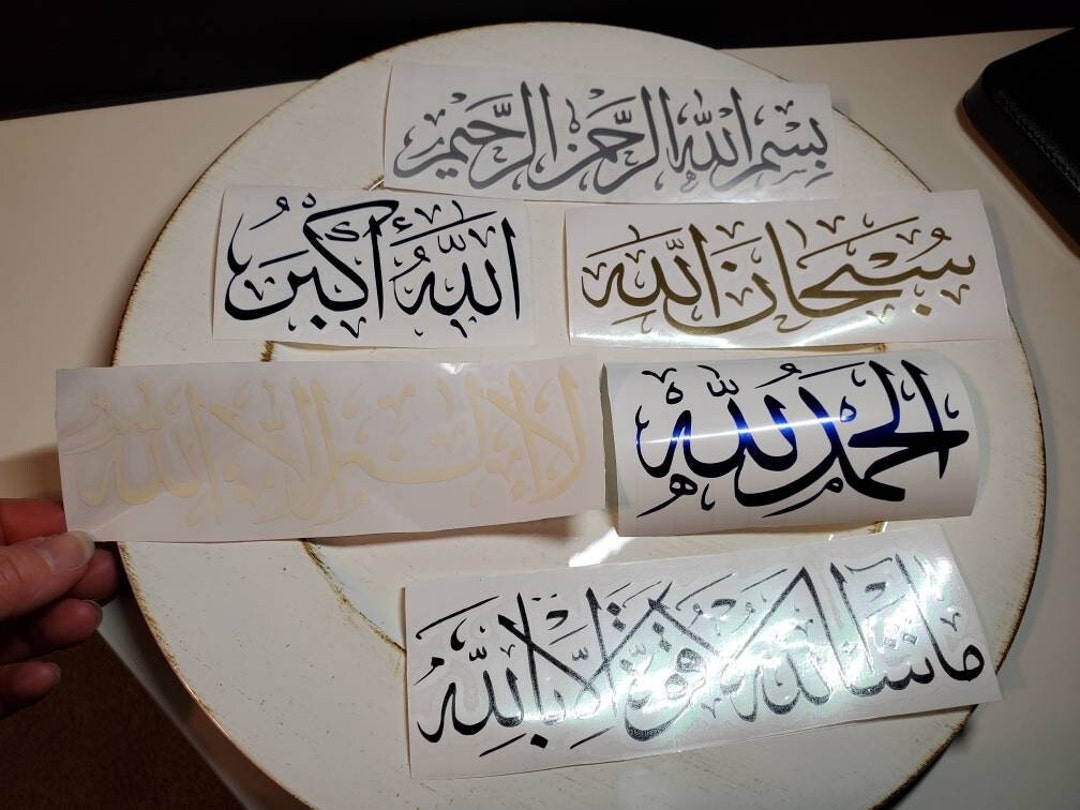 بِسْمِ اللهِ الرَّحْمٰنِ الرَّحِيمِ
اللهُ أَكْبَرُ
سُبْحَانَ اللهِ
لا إله إلا الله
الحَمْدُ لِلّٰهِ
ما شاء الله لا قوة إلا بالله